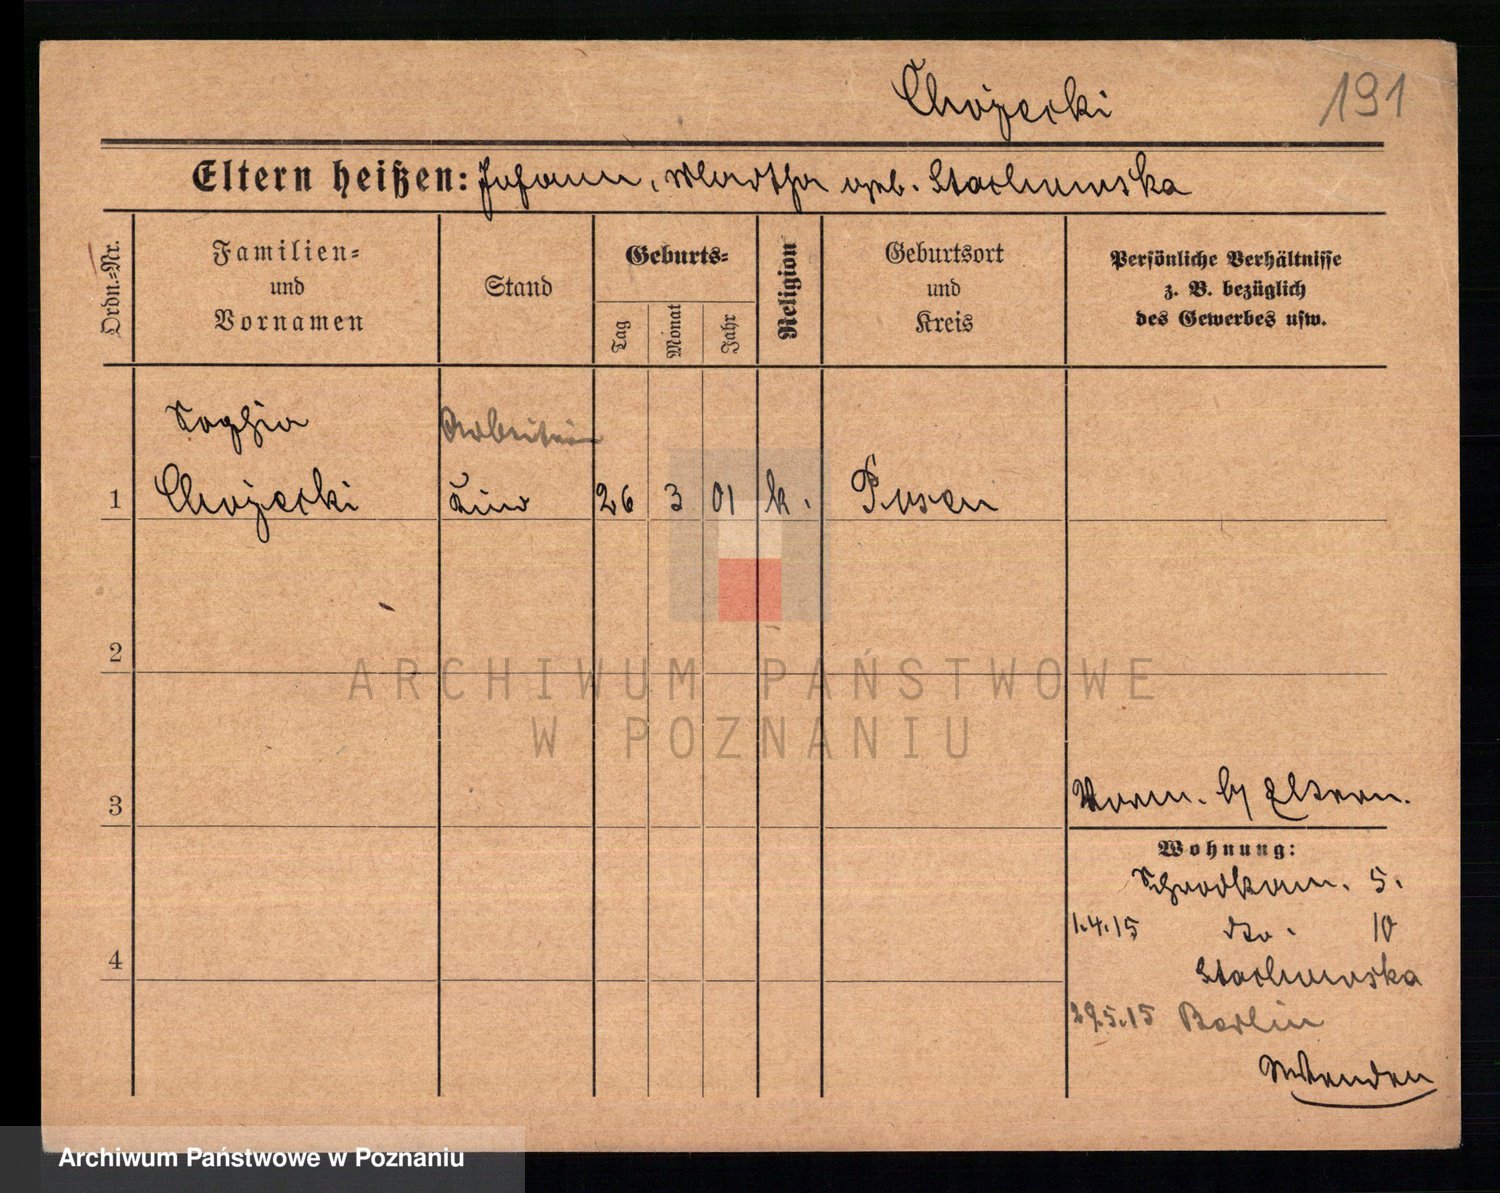 Chojecki
191
Eltern heißen: Johann, Martha geb. Stachowska
Ordn.=Nr.
Familien=
und
Vornamen
Stand
Geburts=
Tag
Monat
Jahr
Religion
Geburtsort
und
Kreis
Persönliche Verhältnisse
z. B. bezüglich
des Gewerbes usw.
Sophia
Arbeiterin
1
Chojecki
Kind
26
3
01
k.
Posen
2
3
Vorm. b/ Eltern.
Wohnung:
Schrodkam. 5.
1.4.15 dto. 10
4
Stachowska
29.5.15 Berlin
ARCHIWUM PAŃSTWOWE
W POZNANIU
Archiwum Państwowe w Poznaniu